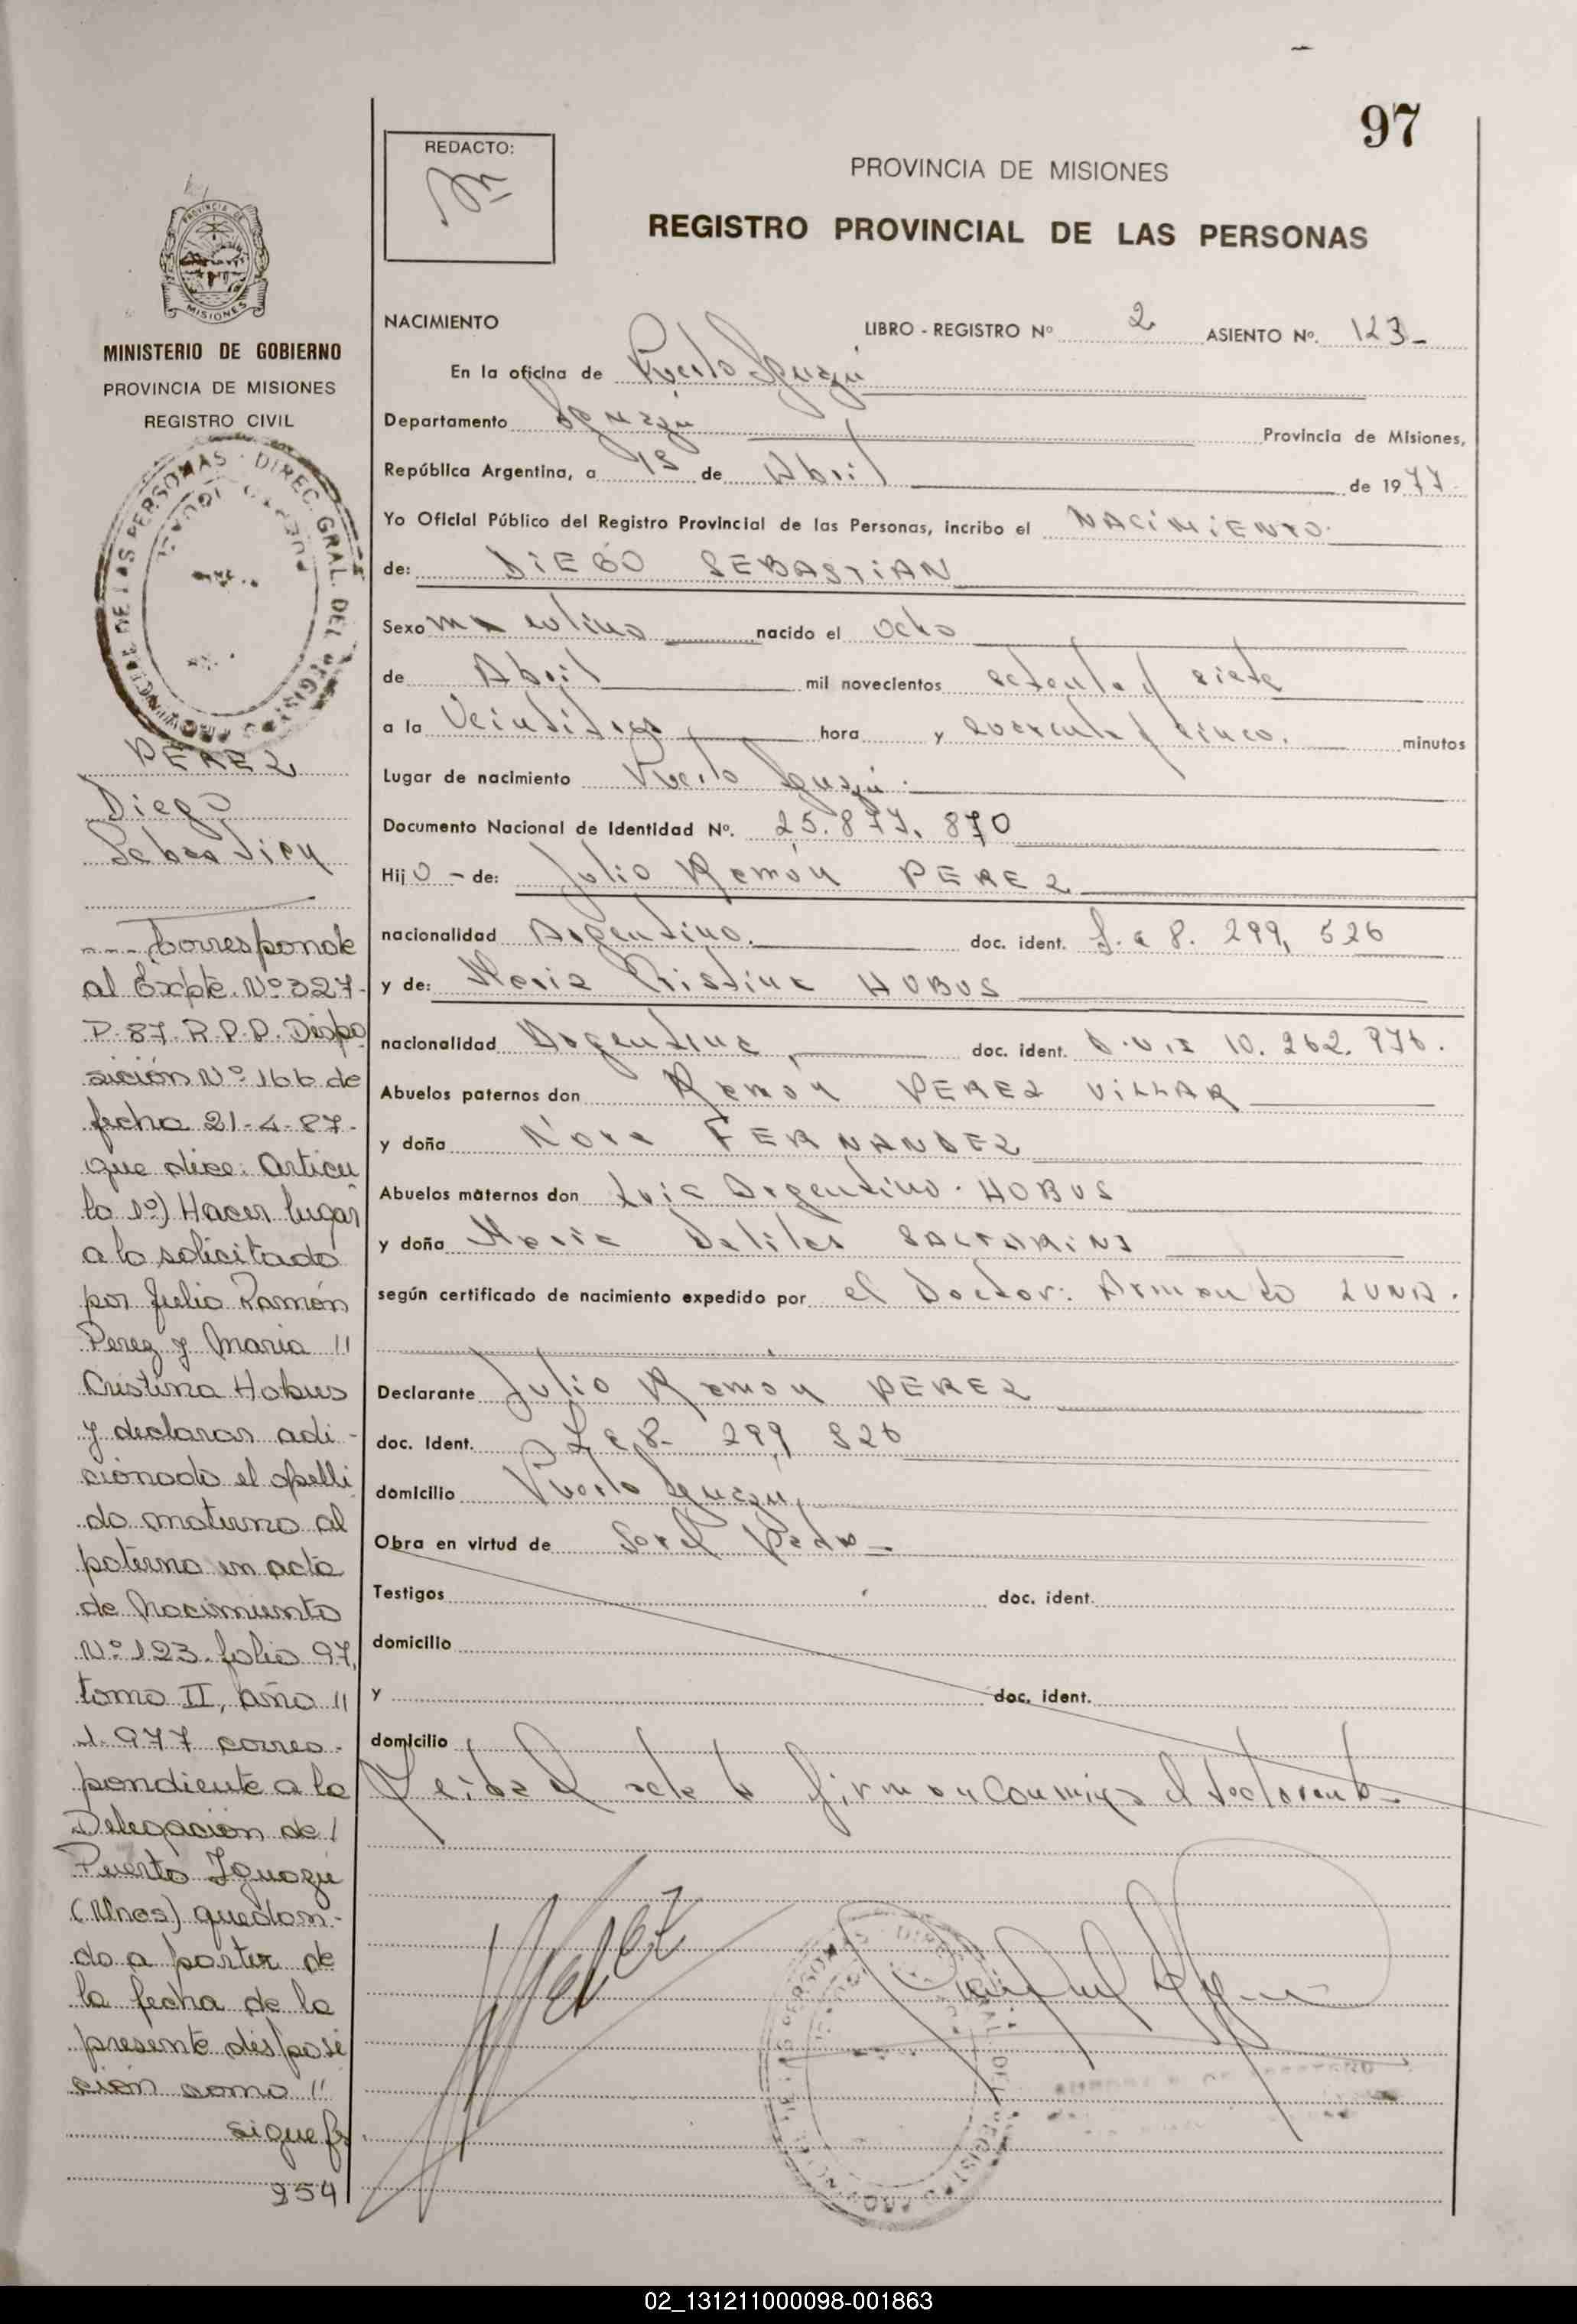 97
REDACTO:
PROVINCIA DE MISIONES
REGISTRO PROVINCIAL DE LAS PERSONAS
PROVINCIA DE
MISIONES
MINISTERIO DE GOBIERNO
PROVINCIA DE MISIONES
REGISTRO CIVIL
PEREZ
Diego
Sebastian
--- Corresponde
al Expte. Nº 327-
P. 87. R.P.P. Dispo
sición Nº 166 de
fecha 21-4-87-
que dice: Articu
lo 1º) Hacer lugar
a lo solicitado
por Julio Ramón
Perez y Maria //
Cristina Hobus
y declarar adi-
cionado el apelli
do materno al
paterno en acta
de Nacimiento
Nº 123. folio 97,
tomo II, año //
1.977 corres-
pondiente a la
Delegación de /
Puerto Iguazú
(Mnes) quedan-
do a partir de
la fecha de la
presente disposi
ción como //
sigue f
254
NACIMIENTO LIBRO - REGISTRO Nº 2 ASIENTO Nº. 123-
En la oficina de Puerto Iguazú
Departamento Iguazú Provincia de Misiones,
República Argentina, a de Abril de 1977
Yo Oficial Público del Registro Provincial de las Personas, incribo el NACIMIENTO
de: DIEGO SEBASTIAN
Sexo masculino nacido el ocho
de Abril mil novecientos setenta y siete
a la Veintidos hora y cuarenta y cinco. minutos
Lugar de nacimiento Puerto Iguazú.
Documento Nacional de Identidad Nº. 25.877.870
Hijo - de: Julio Ramón PEREZ
nacionalidad Argentino. doc. ident. L.E 8. 299, 526
y de: Maria Cristina HOBUS
nacionalidad Argentina, doc. ident. D.N.I 10. 262. 976.
Abuelos paternos don Ramón PEREZ VILLAR
y doña Nora FERNANDEZ
Abuelos maternos don Luis Argentino HOBUS
y doña Maria
según certificado de nacimiento expedido por el Doctor: Armando LUNA.
Declarante Julio Ramón PEREZ
doc. Ident. L.E 8. 299 526
domicilio Puerto Iguazú,
Obra en virtud de
Testigos doc. ident.
domicilio
y doc. ident.
domicilio
Leida el acta la firman conmigo el declarante-
02_131211000098-001863